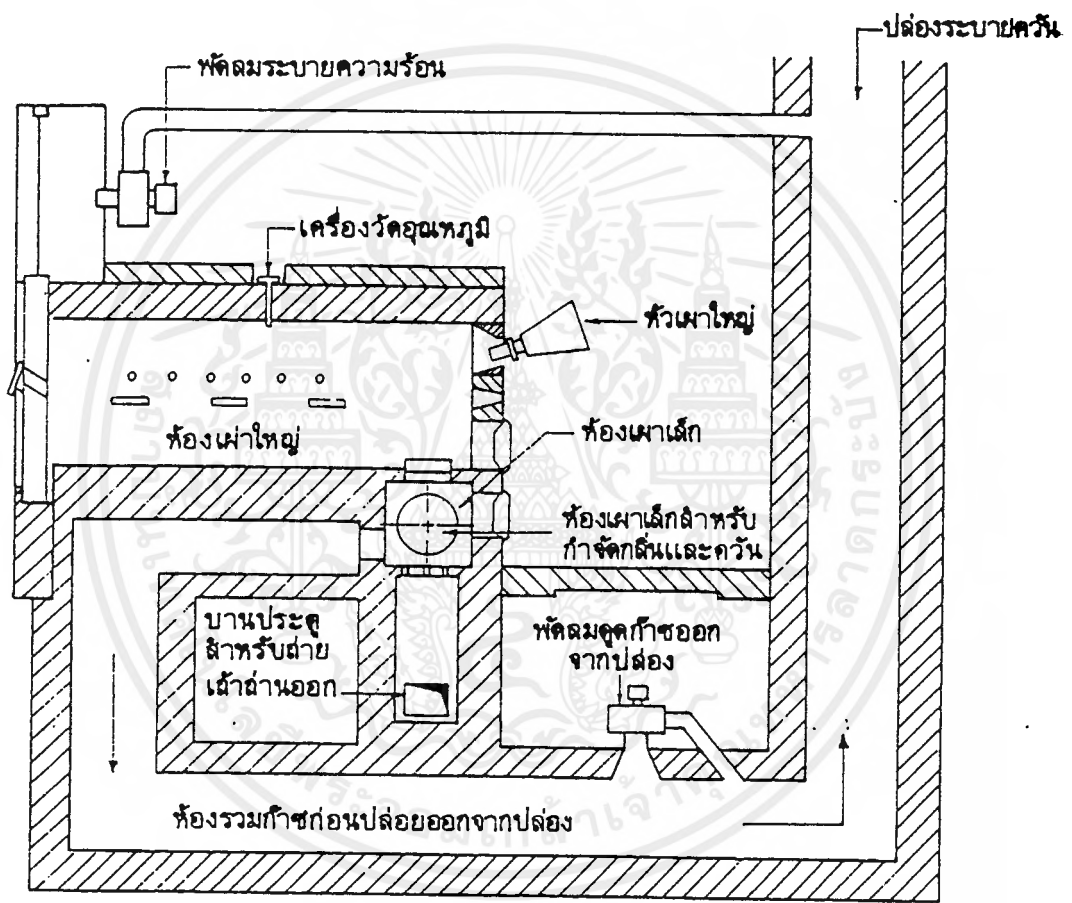 ปล่องระบายควัน
พัดลมระบายความร้อน
เครื่องวัดอุณหภูมิ
หัวเผาใหญ่
ห้องเผ่าใหญ่
ห้องเผาเล็ก
ห้องเผาเล็กสำหรับ
กำจัดกลิ่นและควัน
บานประตู
สำหรับถ่าย
เถ้าถ่านออก
พัดลมดูดก๊าซออก
จากปล่อง
ห้องรวมก๊าซก่อนปล่อยออกจากปล่อง